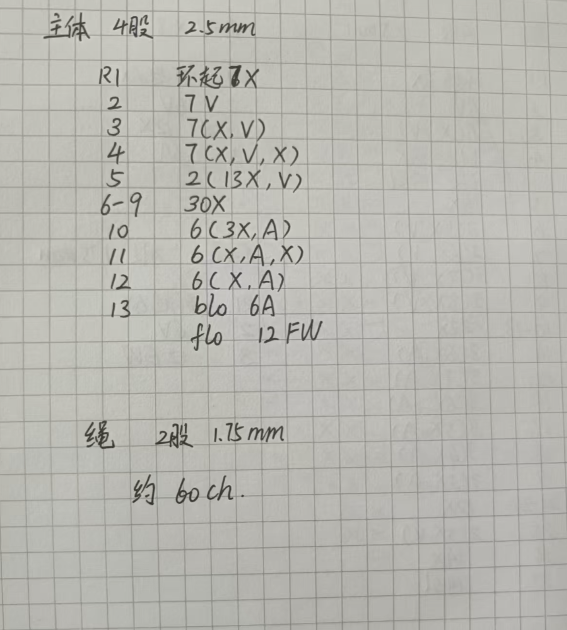 主体 4股 2.5mm
R1 环起7X
2 7V
3 7(X,V)
4 7(X,V,X)
5 2(13X,V)
6-9 30X
10 6(3X,A)
11 6(X,A,X)
12 6(X,A)
13 blo 6A
flo 12FW
绳 2股 1.75mm
约 60ch.